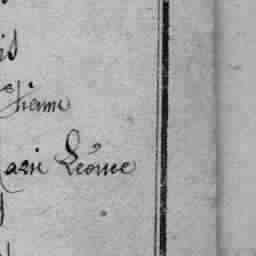 is
tienne
arie Léonce